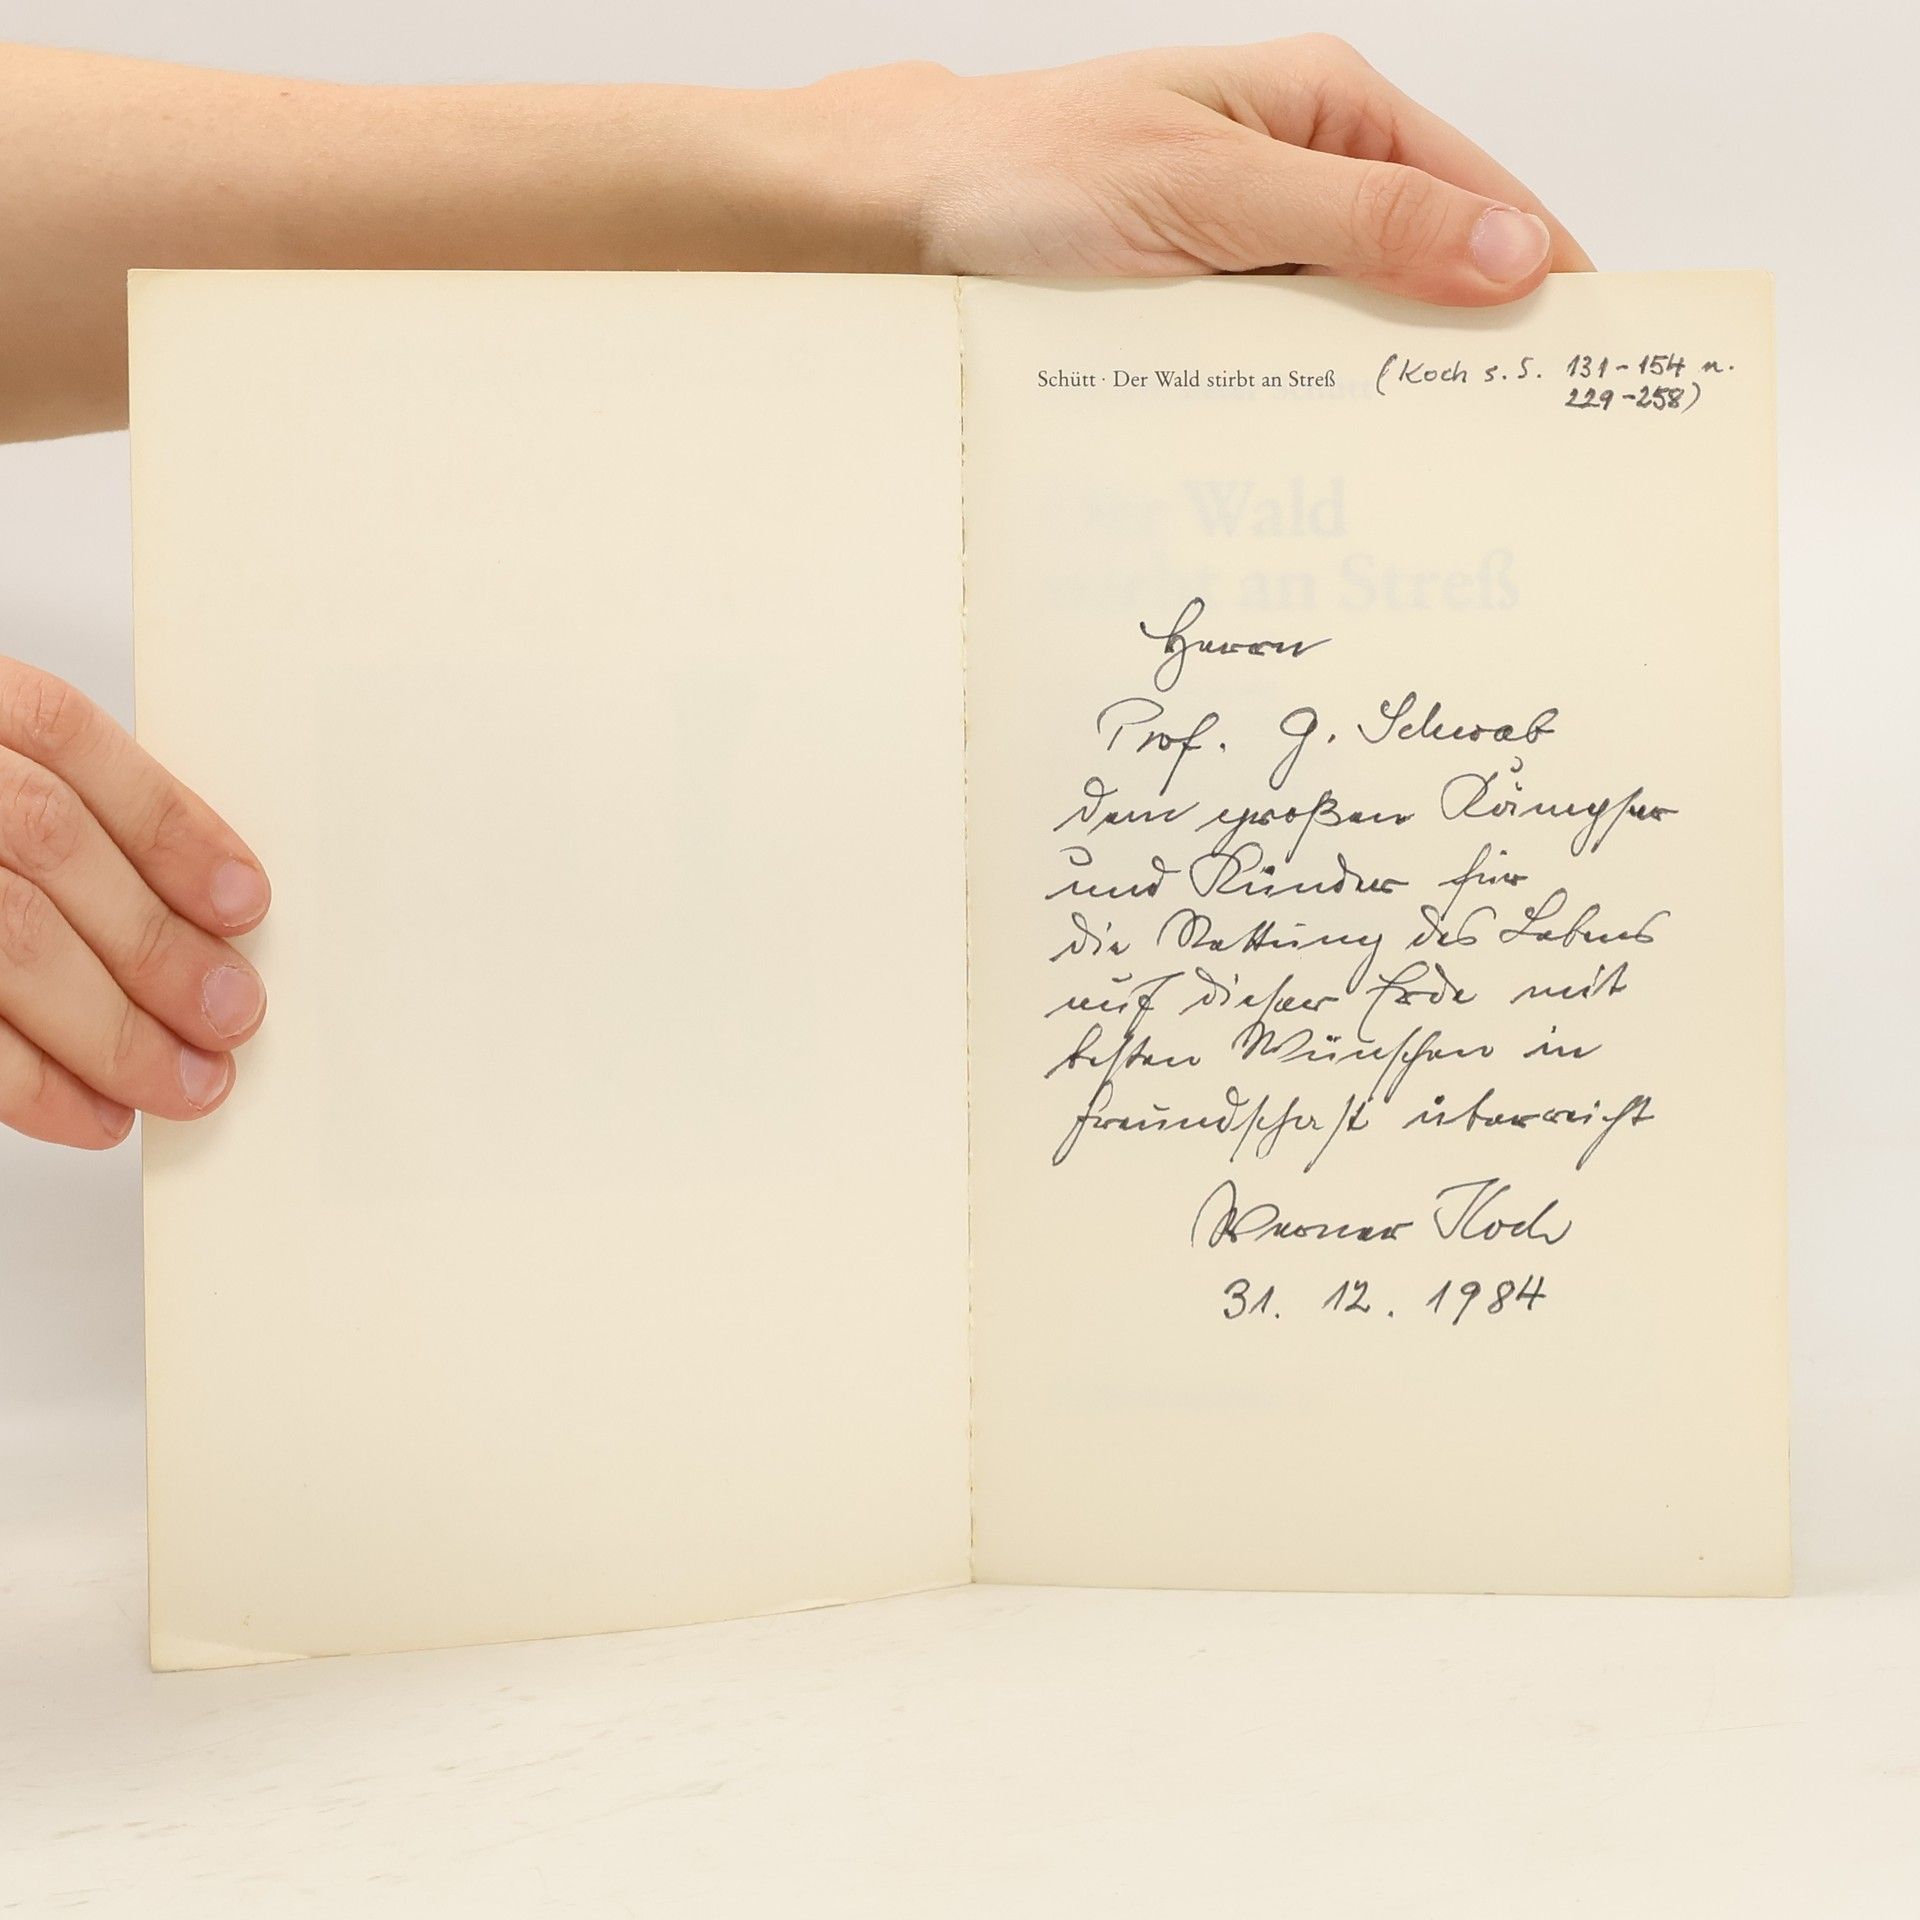 Schütt · Der Wald stirbt an Streß (Koch s. S. 131-154 u.
229-258)
Der Wald
stirbt an Streß
Herrn
Prof. G. Schwab
dem großen Kämpfer
und Künder für
die Rettung des Lebens
auf dieser Erde mit
besten Wünschen in
Freundschaft überreicht
Werner Koch
31. 12. 1984